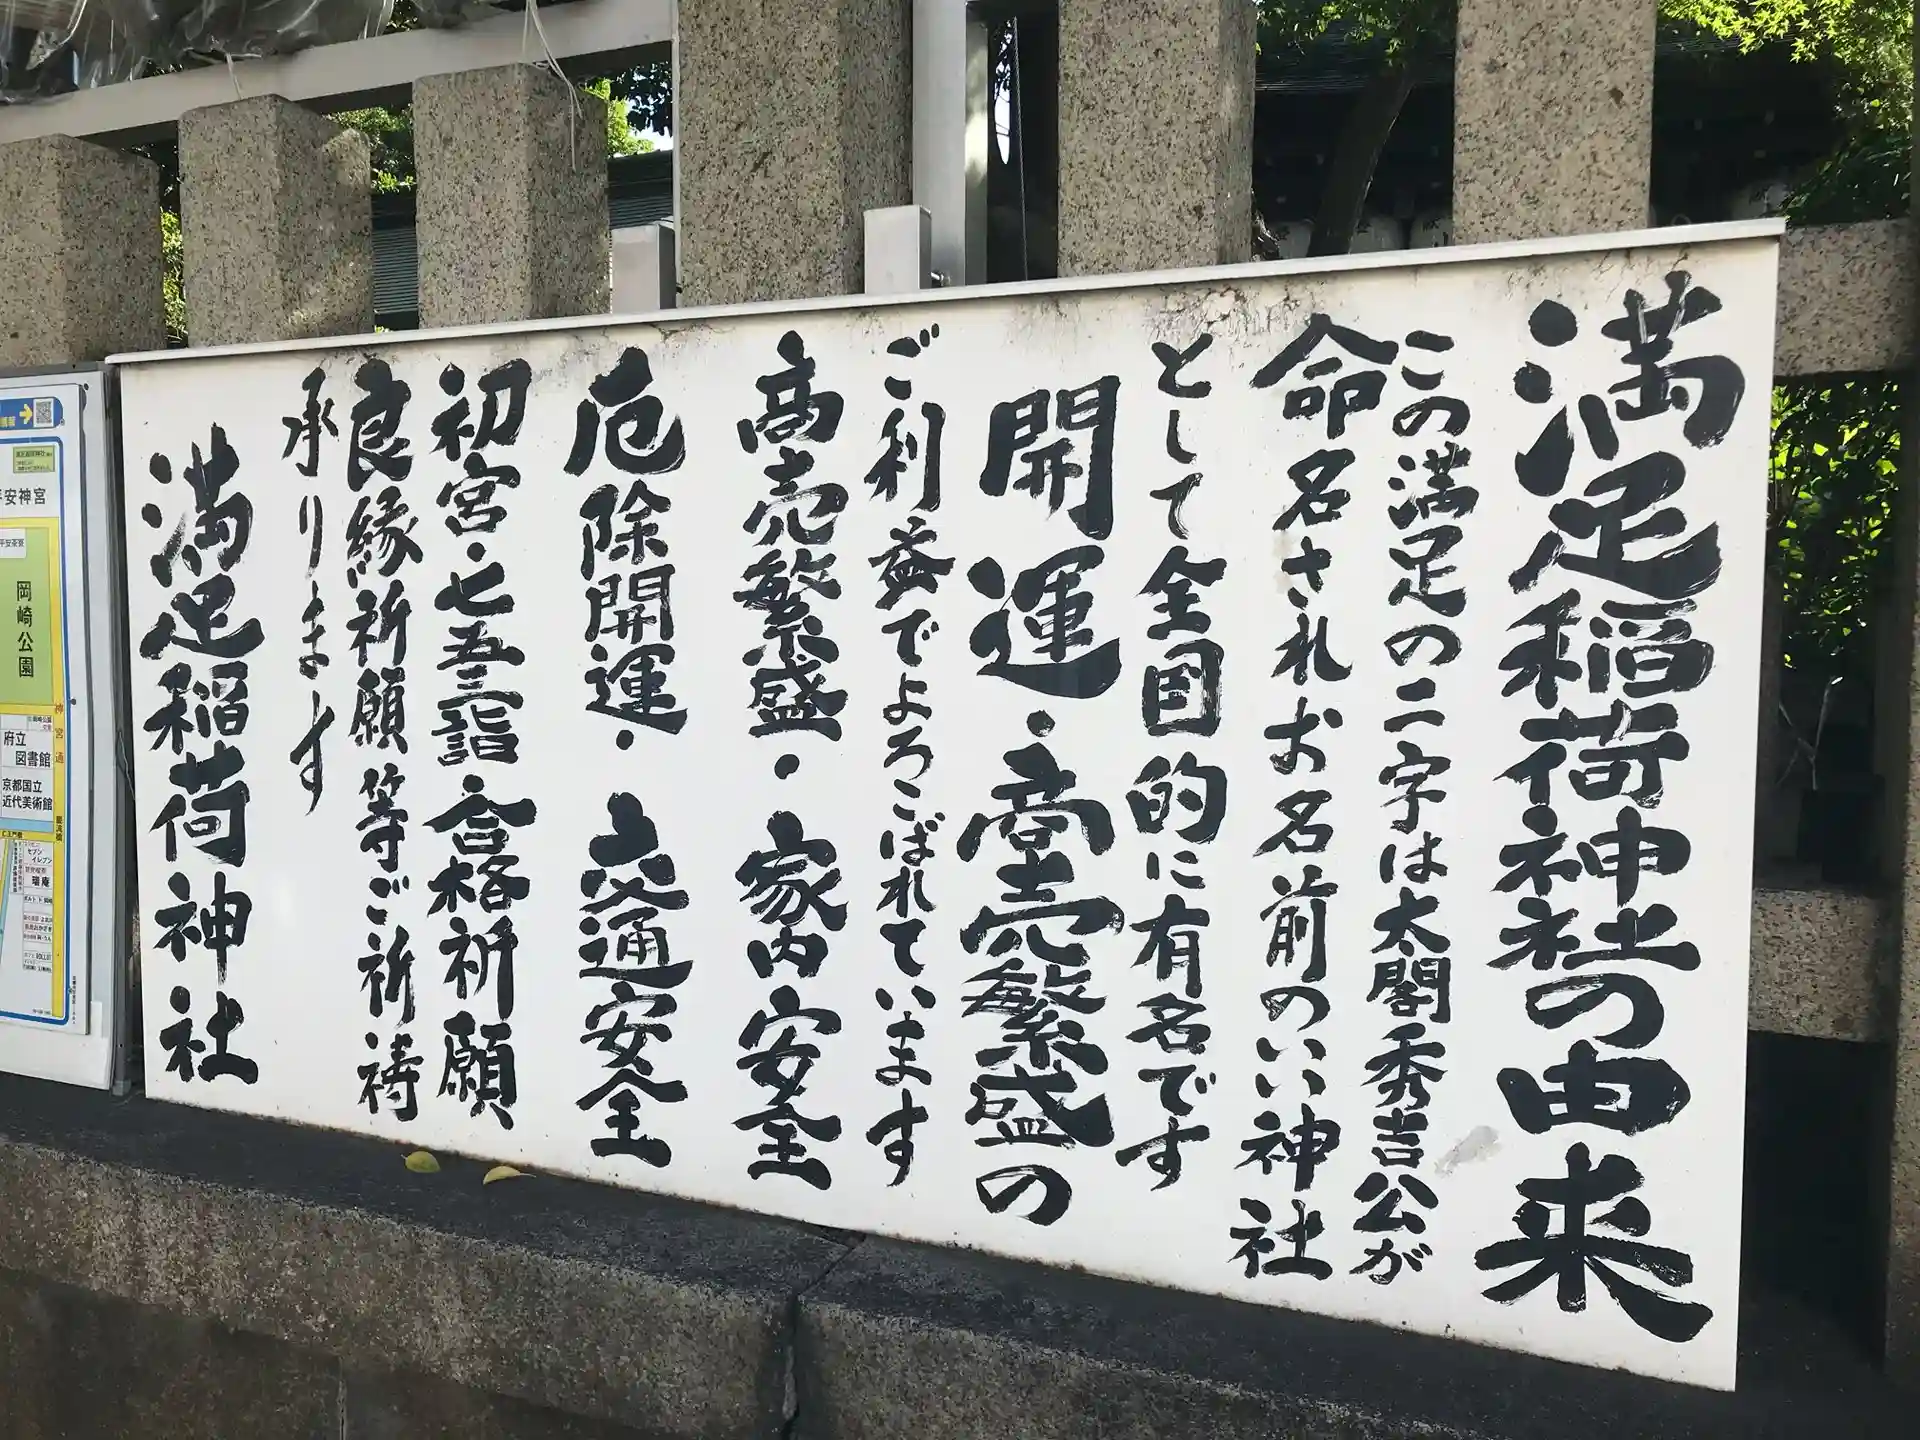 満足稲荷神社の由来
この満足の二字は太閤秀吉公が
命名されお名前のいい神社
として全国的に有名です
開運・商売繁盛の
ご利益でよろこばれています
商売繁盛・家内安全
厄除開運・交通安全
初宮・七五三詣・合格祈願
良縁祈願等ご祈祷
承ります
満足稲荷神社
平安神宮
岡崎公園
府立
図書館
京都国立
近代美術館
神宮通
セブン
イレブン
瑞庵